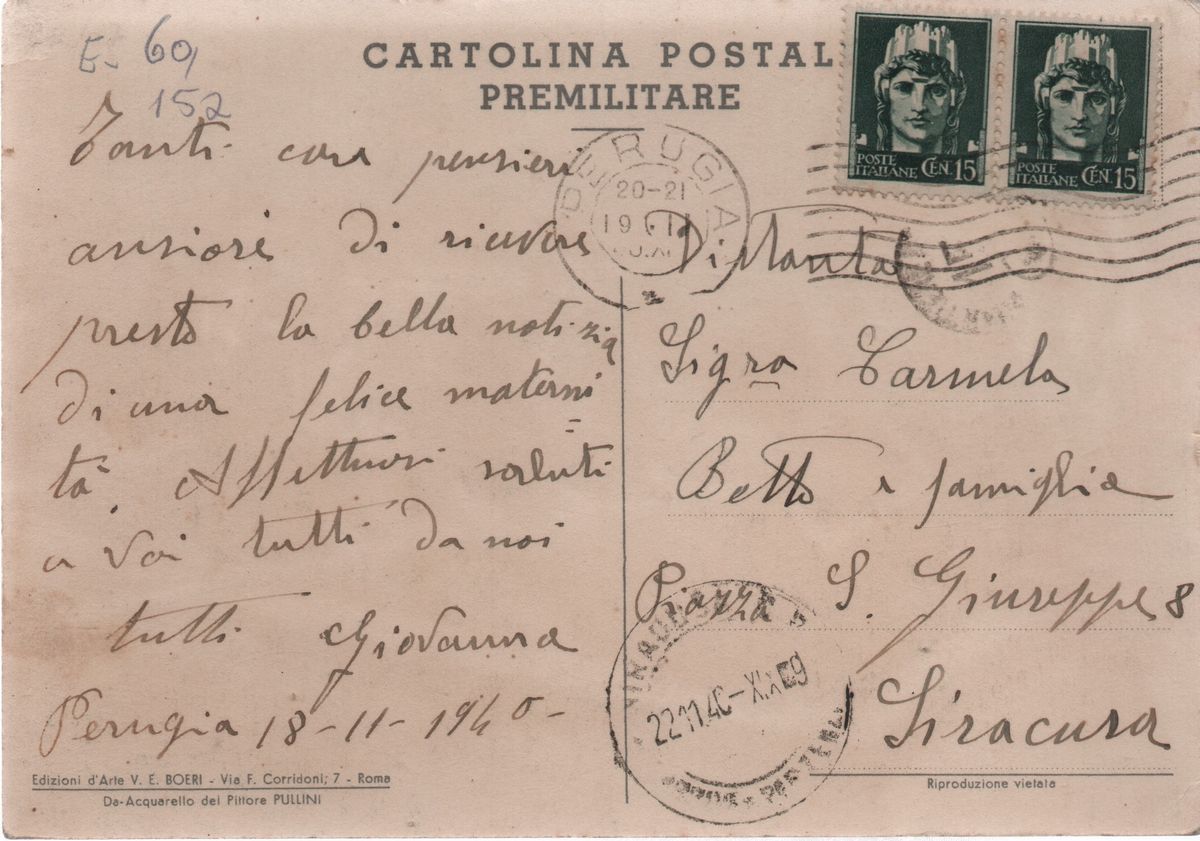 E- 60
152
CARTOLINA POSTAL
PREMILITARE
POSTE ITALIANE CEN. 15
POSTE ITALIANE CEN. 15
PERUGIA
20-21
Tanti cari pensieri
ansiosi di ricevere
presto la bella notizia
di una felice materni
tà. Affettuosi saluti
a voi tutti da noi
tutti Giovanna
Perugia 18-11-1940-
Distinta
Sigra Carmela
Betto e famiglia
Piazza S. Giuseppe 8
Siracusa
SIRACUSA
22.11.40-XIX
Edizioni d'Arte V. E. BOERI - Via F. Corridoni; 7 - Roma
Da-Acquarello del Pittore PULLINI
Riproduzione vietata